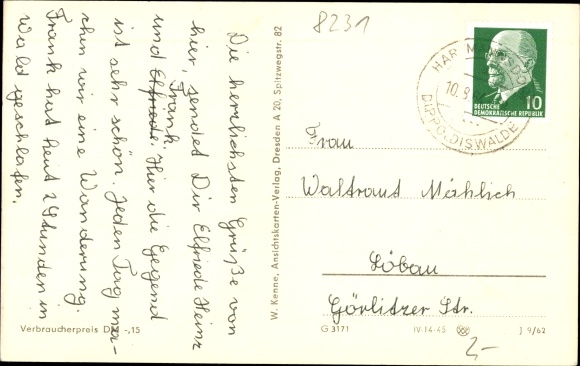 8231
Die herrlichsten Grüße von
hier, sendet Dir Elfriede Heinz
und Elfriede. Frank. Hier die Gegend
ist sehr schön. Jeden Tag ma-
chen wir eine Wanderung.
Frank hat heut 2 Stunden im
Wald geschlafen.
Verbraucherpreis DM -,15
W. Kenne, Ansichtskarten-Verlag, Dresden A 20, Spitzwegstr. 82
DIPPOLDISWALDE
10.9.
DEUTSCHE
DEMOKRATISCHE REPUBLIK
10
Frau
Waltraut Mählich
Löbau
Görlitzer Str.
G 3171 IV-14-45 J 9/62
2,-